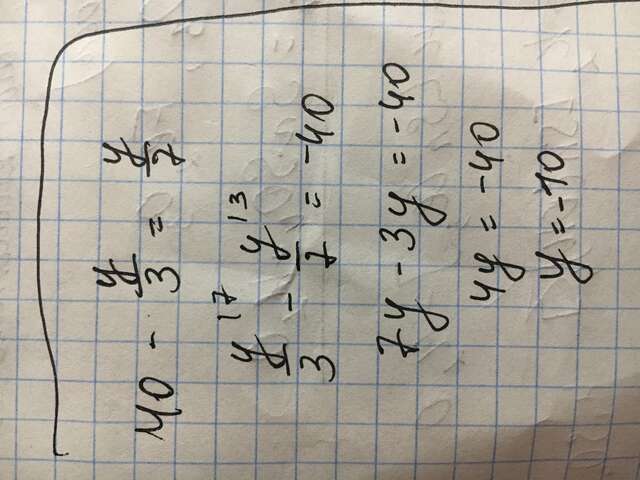 40 - y/3 = y/7
y/3 \7 - y/7 \3 = -40
7y - 3y = -40
4y = -40
y = -10